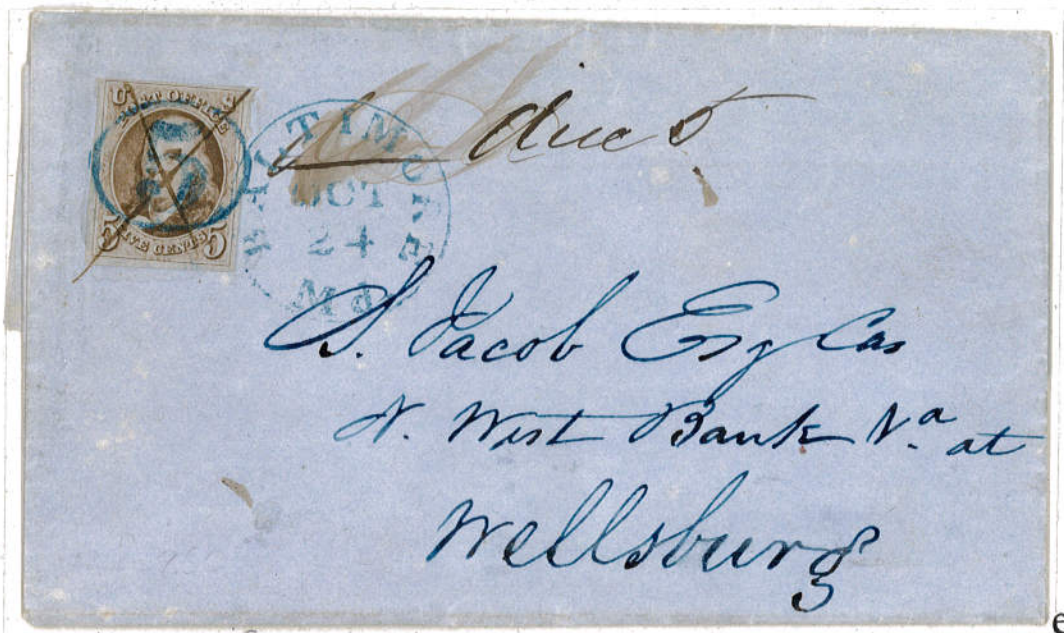 U S
POST OFFICE
5
FIVE CENTS
5 5
BALTIMORE
OCT
24
Md.
due 5
S. Jacob Esq Cas
N. West Bank Va at
Wellsburg